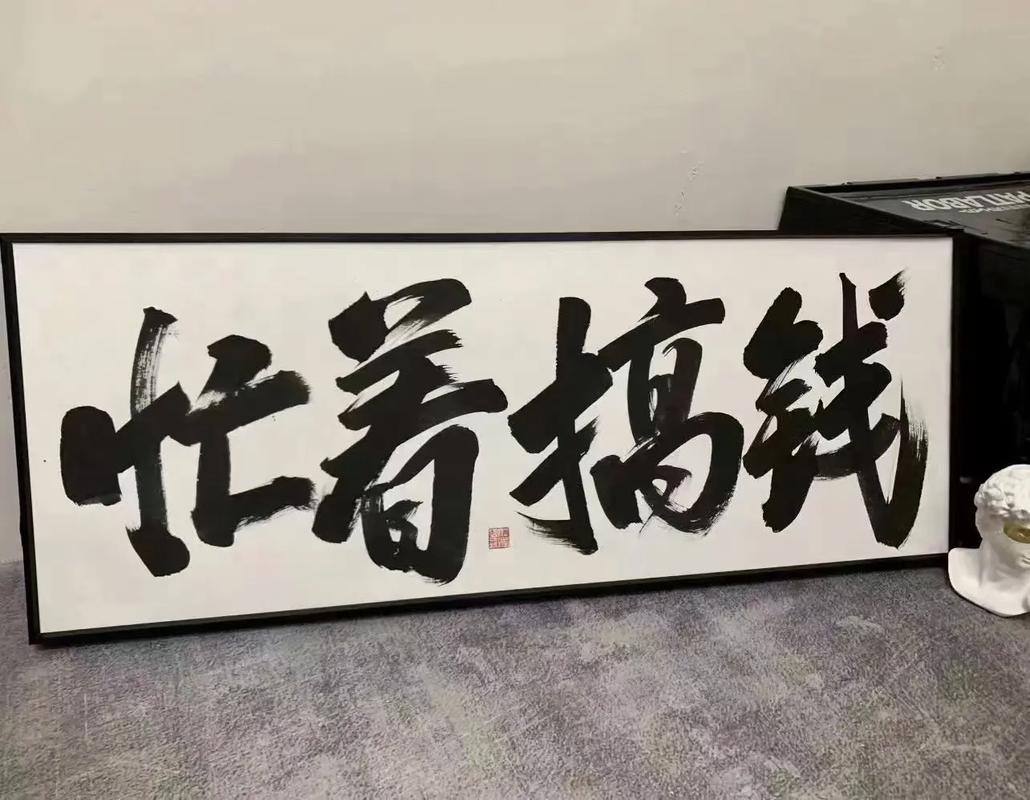 忙着搞钱
PATLABOR